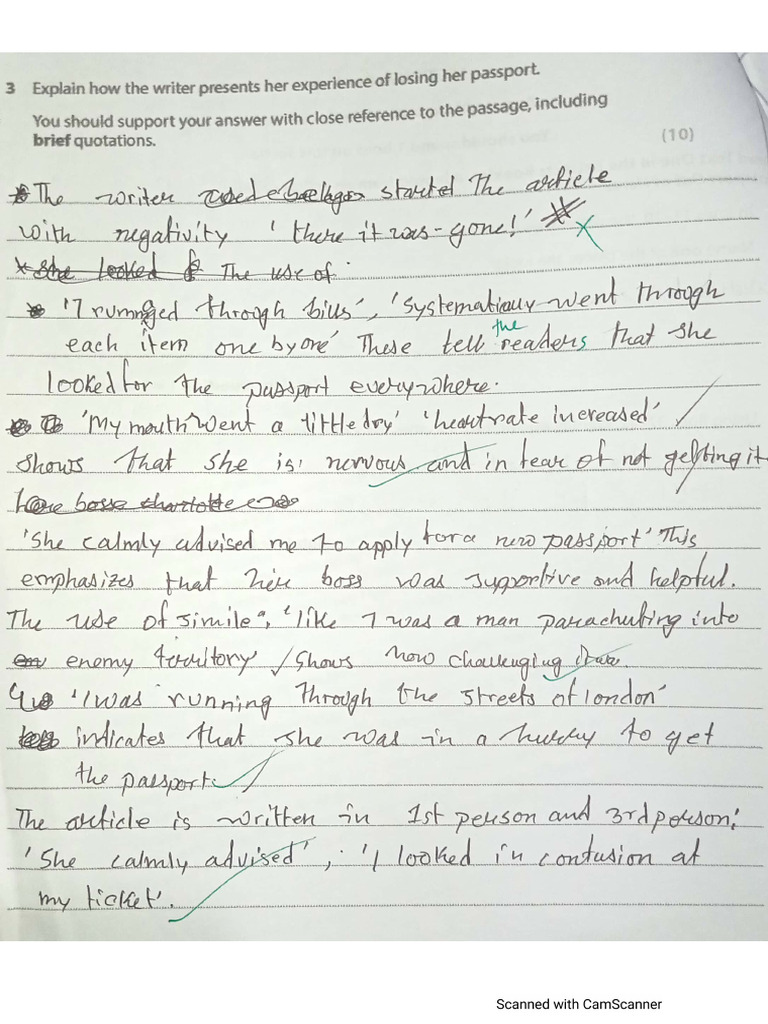 3 Explain how the writer presents her experience of losing her passport.
You should support your answer with close reference to the passage, including
brief quotations.
(10)
The writer started The article
with negativity 'there it was - gone!'
She looked The use of
'I rummged through bills', 'systematically went through
each item one by one' These tell the readers that she
looked for the passport everywhere.
'My mouth went a little dry' 'heartrate increased'
shows that she is nervous and in fear of not getting it
boss charlotte
'She calmly advised me to apply for a new passport' This
emphasizes that her boss was supportive and helpful.
The use of simile, 'like I was a man parachuting into
enemy territory' shows how challenging it was
'I was running through the streets of london'
indicates that she was in a hurry to get
the passport.
The article is written in 1st person and 3rd person:
'She calmly advised', 'I looked in confusion at
my ticket'.
Scanned with CamScanner